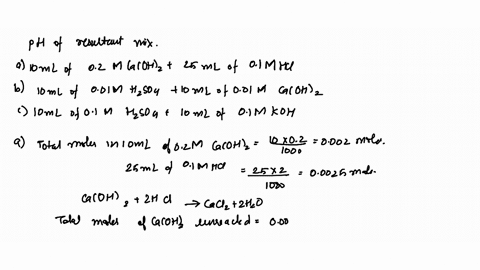 pH of resultant mix.
a) 10 mL of 0.2 M Ca(OH)2 + 25 mL of 0.1 M HCl
b) 10 mL of 0.01 M H2SO4 + 10 mL of 0.01 M Ca(OH)2
c) 10 mL of 0.1 M H2SO4 + 10 mL of 0.1 M KOH
a) Total moles in 10 mL of 0.2 M Ca(OH)2 = 10 x 0.2 / 1000 = 0.002 moles.
25 mL of 0.1 M HCl = 25 x 2 / 1000 = 0.0025 moles.
Ca(OH)2 + 2HCl → CaCl2 + 2H2O
Total moles of Ca(OH)2 unreacted = 0.00